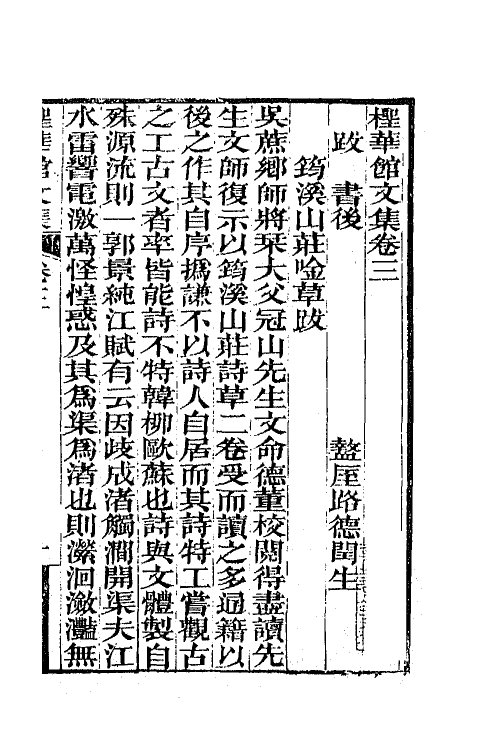 檉華館文集卷三
跋　書後　盩厔路德閏生
筠溪山莊唫草跋
吳蔗鄉師將栞大父冠山先生文命德董校閱得盡讀先
生文師復示以筠溪山莊詩草二卷受而讀之多通籍以
後之作其自序撝謙不以詩人自居而其詩特工嘗觀古
之工古文者率皆能詩不特韓柳歐蘇也詩與文體製自
殊源流則一郭景純江賦有云因歧成渚觸澗開渠夫江
水雷響電激萬怪惶惑及其為渠為渚也則瀠洄瀲灩無
檉華館文集　卷三　一